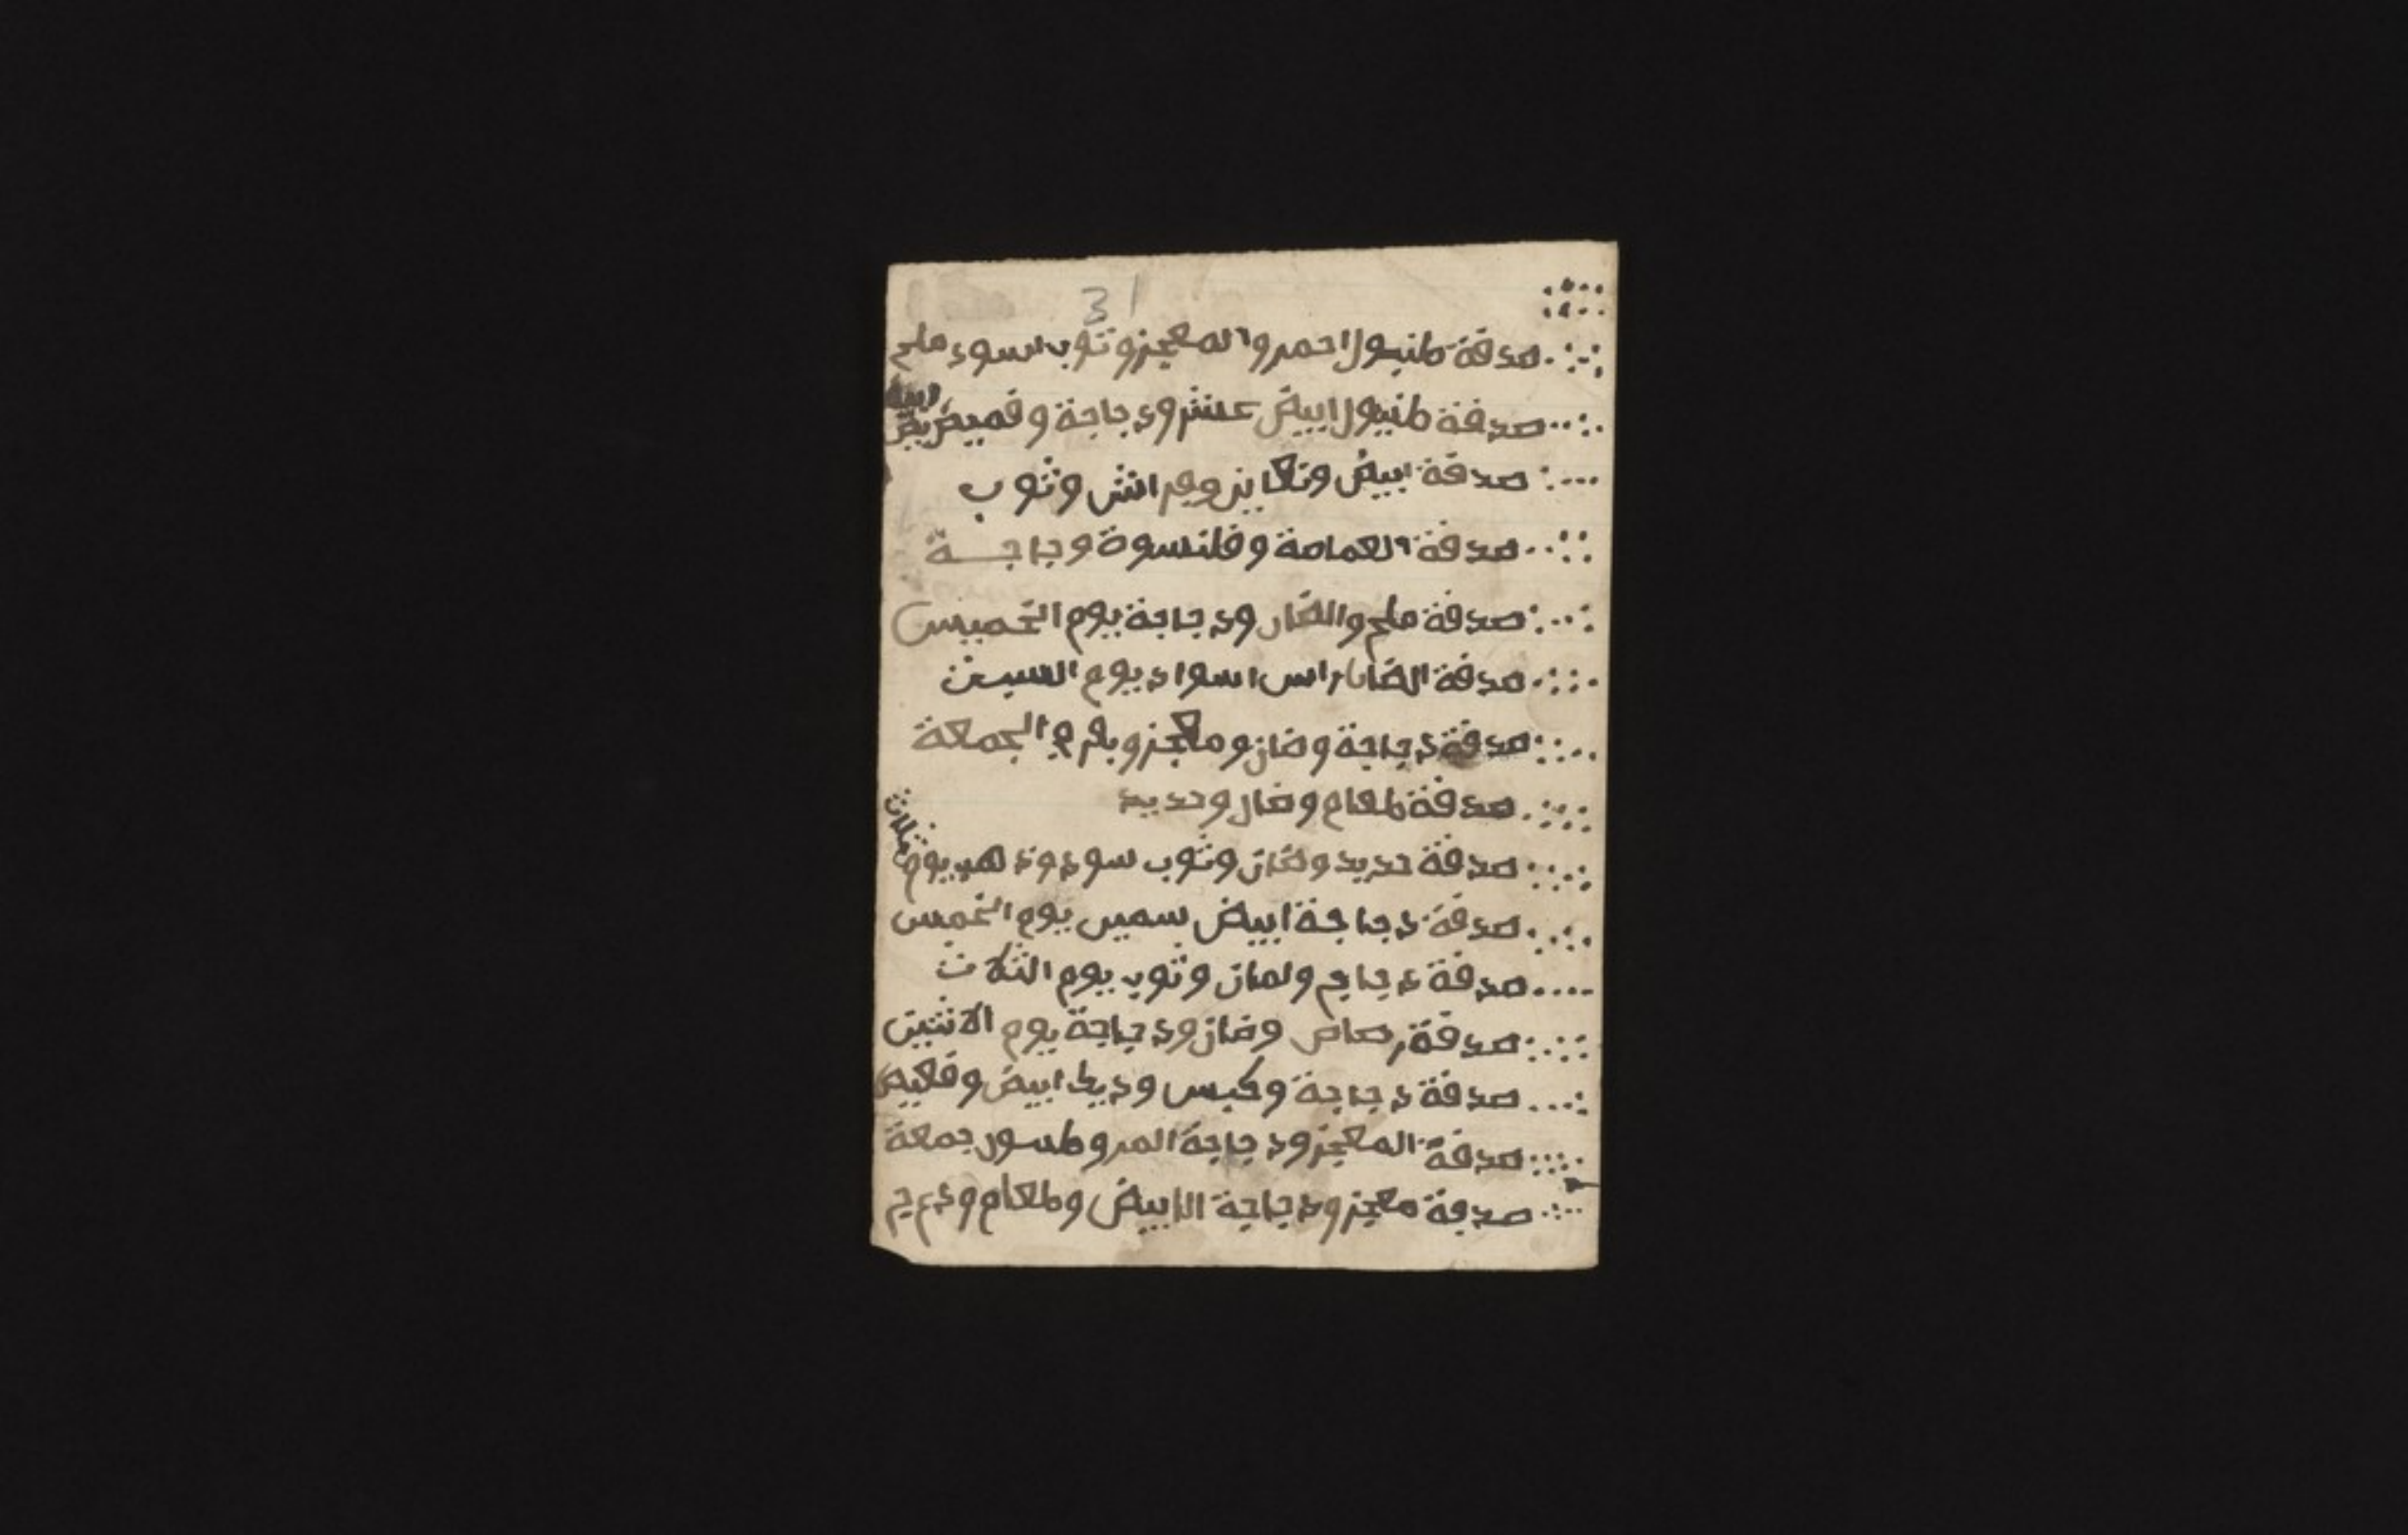 31
صدقة طنبول احمر والمعجز وثوب اسود ملح
صدقة طنيول ابيض عشر ودجاجة وقميص
صدقة ابيض وثوب
صدقة العمامة وقلنسوة وجاجة
صدقة ملح والضان ودجاجة يوم الخميس
صدقة الضان راس اسواد يوم السبت
صدقة دجاجة وضان ومعجز وبقر يوم الجمعة
صدقة طعام وضان وحديد
صدقة حديد وضان وثوب سود وذهب يوم ثلاث
صدقة دجاجة ابيض سمين يوم الخمس
صدقة دجاج وضان وثوب يوم الثلاث
صدقة رصاص وضان ودجاجة يوم الاثنين
صدقة دجاجة وكبس وديك ابيض وقميص
صدقة المعجز ودجاجة المر جمعة
صدقة معجز ودجاجة الابيض وطعام